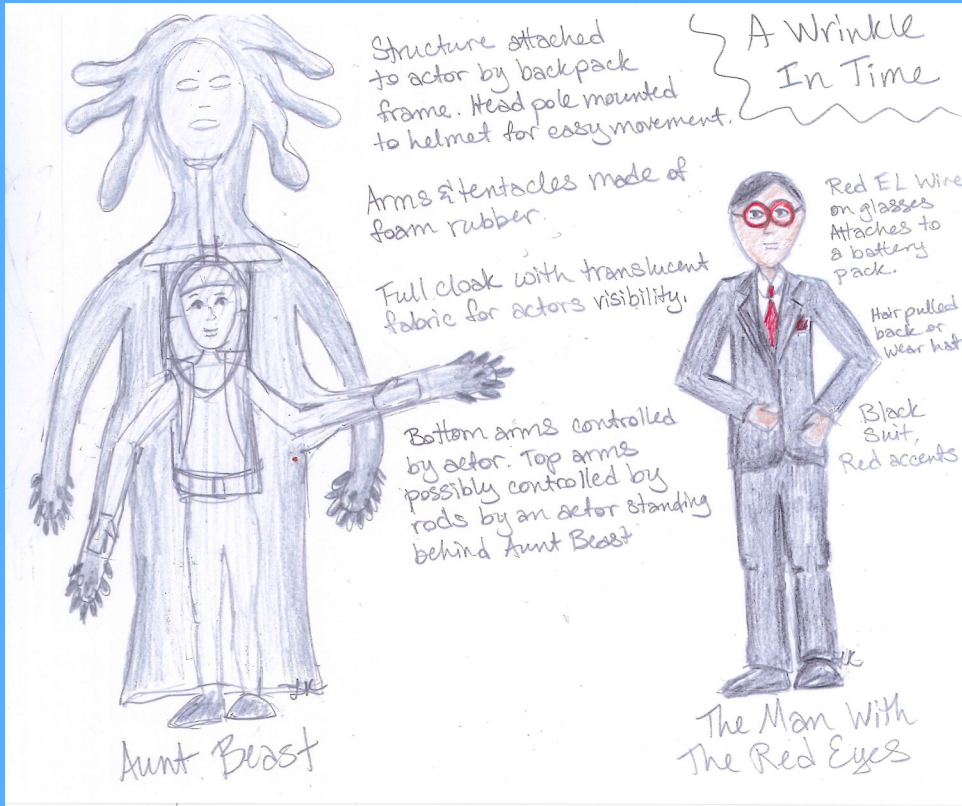 A Wrinkle
In Time
Structure attached
to actor by backpack
frame. Head pole mounted
to helmet for easy movement.
Arms & tentacles made of
foam rubber.
Full cloak with translucent
fabric for actors visibility.
Bottom arms controlled
by actor. Top arms
possibly controlled by
rods by an actor standing
behind Aunt Beast
Aunt Beast
Red EL Wire
on glasses
Attaches to
a battery
pack.
Hair pulled
back or
wear hat
Black
Suit,
Red accents
The Man With
The Red Eyes
LK
LK